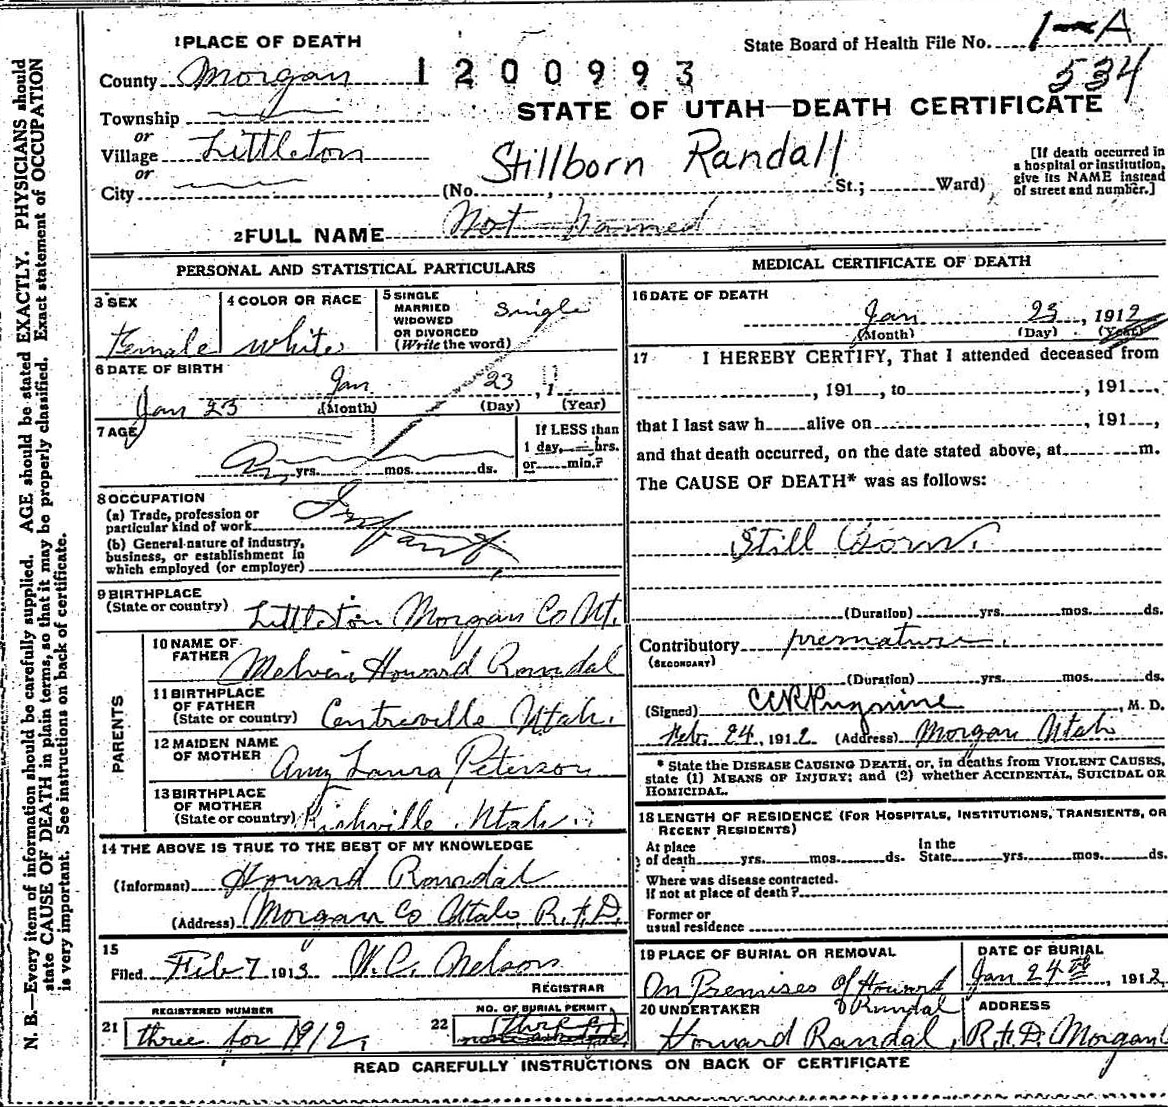 N. B.—Every item of information should be carefully supplied. AGE should be stated EXACTLY. PHYSICIANS should
state CAUSE OF DEATH in plain terms, so that it may be properly classified. Exact statement of OCCUPATION
is very important. See instructions on back of certificate.
1 PLACE OF DEATH
State Board of Health File No. 1-A
534
County Morgan
1200993
STATE OF UTAH—DEATH CERTIFICATE
Township
or
Village Littleton
or
City
Stillborn Randall
(No. , St.; Ward)
[If death occurred in
a hospital or institution,
give its NAME instead
of street and number.]
2 FULL NAME Not named
PERSONAL AND STATISTICAL PARTICULARS
3 SEX
Female
4 COLOR OR RACE
White
5 SINGLE
MARRIED
WIDOWED
OR DIVORCED
(Write the word)
Single
6 DATE OF BIRTH
Jan 23, 1
Jan 23
(Month) (Day) (Year)
7 AGE
yrs. mos. ds.
If LESS than
1 day, hrs.
or min.?
8 OCCUPATION
(a) Trade, profession or
particular kind of work
(b) General nature of industry,
business, or establishment in
which employed (or employer)
Infant
9 BIRTHPLACE
(State or country)
Littleton Morgan Co Ut.
PARENTS
10 NAME OF
FATHER
Melvin Howard Randal
11 BIRTHPLACE
OF FATHER
(State or country)
Centreville Utah.
12 MAIDEN NAME
OF MOTHER
Amy Laura Peterson
13 BIRTHPLACE
OF MOTHER
(State or country)
Richville Utah.
14 THE ABOVE IS TRUE TO THE BEST OF MY KNOWLEDGE
(Informant) Howard Randal
(Address) Morgan Co Utah, R.F.D.
15
Filed Feb 7 1913 W.C. Nelson
REGISTRAR
21
REGISTERED NUMBER
three for 1912.
22
NO. OF BURIAL PERMIT
MEDICAL CERTIFICATE OF DEATH
16 DATE OF DEATH
Jan 23, 1912
(Month) (Day) (Year)
17 I HEREBY CERTIFY, That I attended deceased from
, 191 , to , 191 ,
that I last saw h alive on , 191 ,
and that death occurred, on the date stated above, at m.
The CAUSE OF DEATH* was as follows:
Still Born.
(Duration) yrs. mos. ds.
Contributory premature.
(SECONDARY)
(Duration) yrs. mos. ds.
(Signed) , M. D.
Feb. 24, 1912 (Address) Morgan Utah
* State the DISEASE CAUSING DEATH, or, in deaths from VIOLENT CAUSES,
state (1) MEANS OF INJURY; and (2) whether ACCIDENTAL, SUICIDAL OR
HOMICIDAL.
18 LENGTH OF RESIDENCE (FOR HOSPITALS, INSTITUTIONS, TRANSIENTS, OR
RECENT RESIDENTS)
At place
of death yrs. mos. ds.
In the
State yrs. mos. ds.
Where was disease contracted.
If not at place of death?
Former or
usual residence
19 PLACE OF BURIAL OR REMOVAL
On Premises of Howard
Randal
DATE OF BURIAL
Jan 24th, 1912
20 UNDERTAKER
Howard Randal,
ADDRESS
R.F.D. Morgan
READ CAREFULLY INSTRUCTIONS ON BACK OF CERTIFICATE